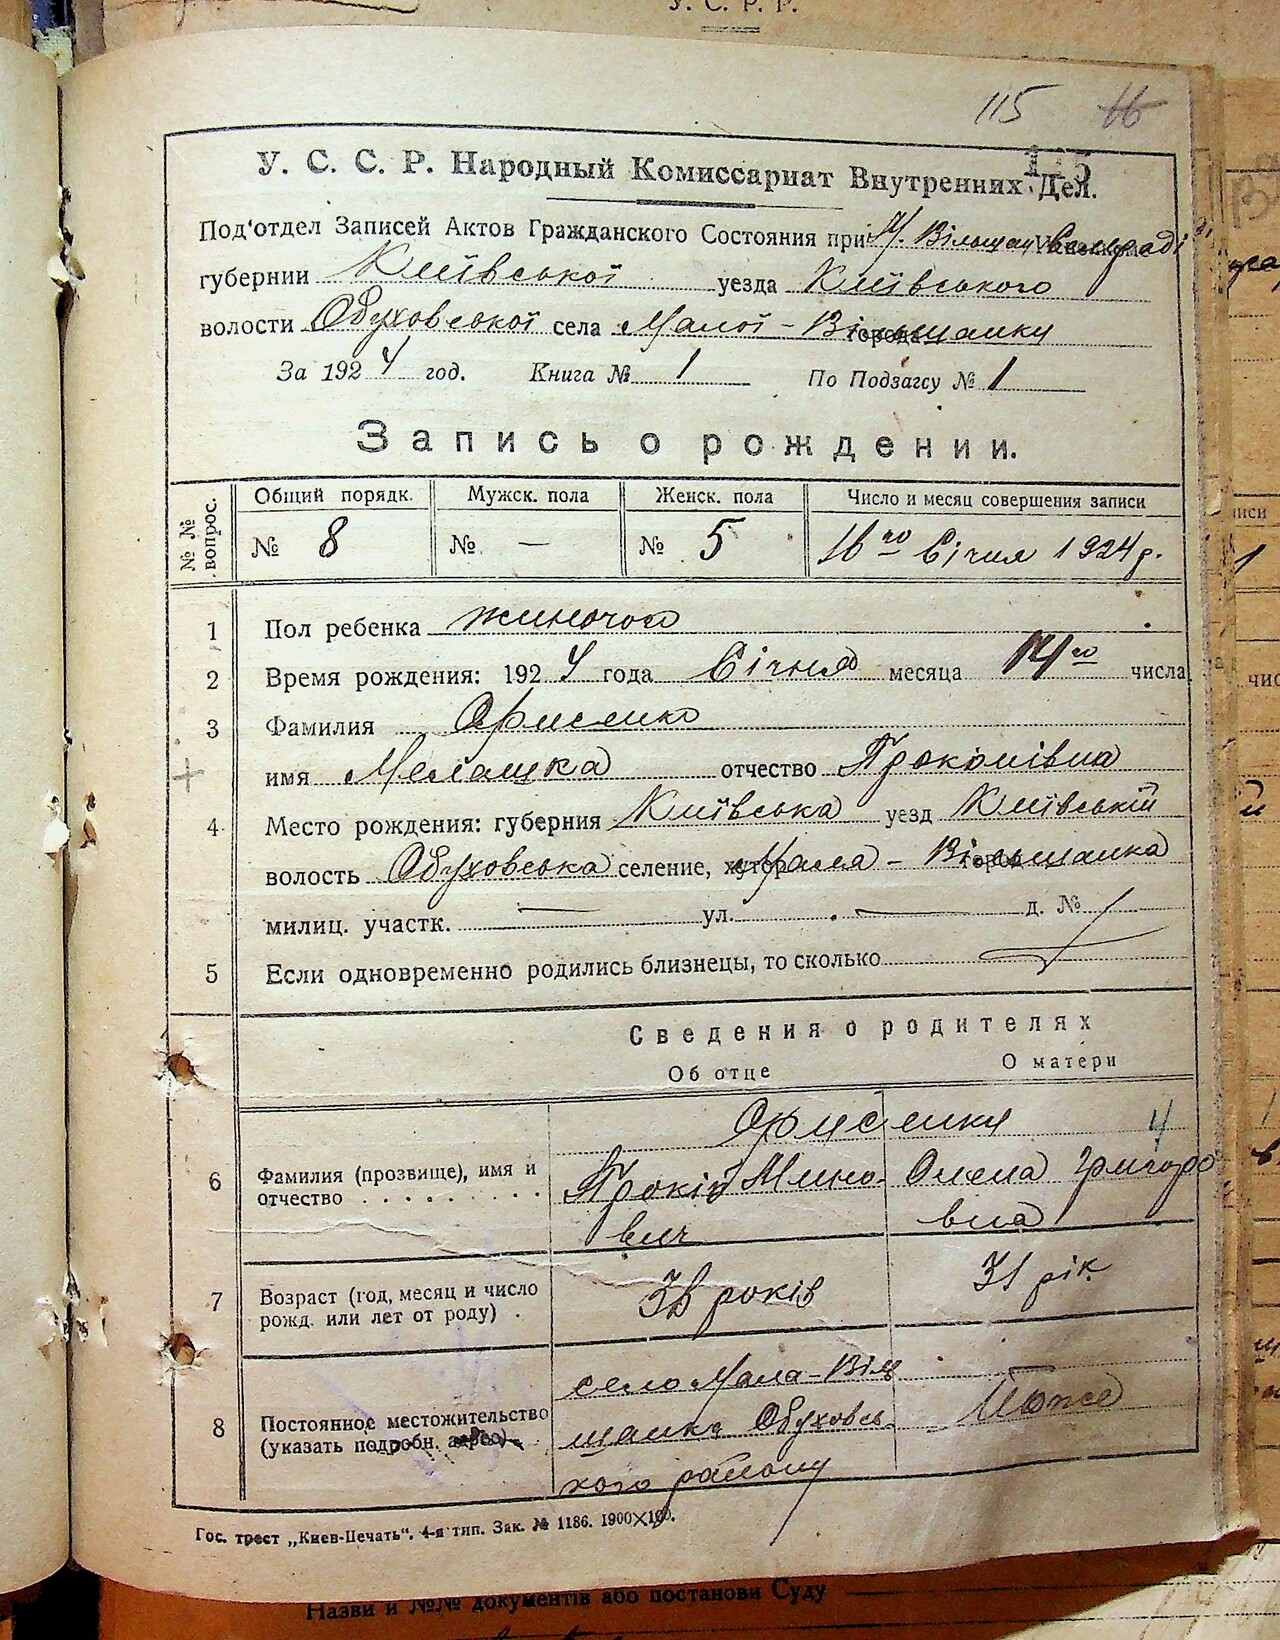 У. С. Р. Р.
115 16
115
У. С. С. Р. Народный Комиссариат Внутренних Дел.
Под'отдел Записей Актов Гражданского Состояния при М. Вільшан. Сельраді
губернии Київської уезда Київського
волости Обуховської села Малої - Вільшанки
За 1924 год. Книга № 1 По Подзагсу № 1
Запись о рождении.
№ № вопрос. Общий порядк. Мужск. пола Женск. пола Число и месяц совершения записи
№ 8 № — № 5 16го Січня 1924 р.
1 Пол ребенка жиночой
2 Время рождения: 1924 года Січня месяца 14го числа
3 Фамилия
имя Мелашка отчество Прокопівна
4 Место рождения: губерния Київська уезд Київській
волость Обуховська селение, хутор Мала - Вільшанка
милиц. участк. — ул. — д. №
5 Если одновременно родились близнецы, то сколько
Сведения о родителях
Об отце О матери
6 Фамилия (прозвище), имя и Прокіп Мино- Олена Григоро
отчество вич вна
7 Возраст (год, месяц и число 38 років 31 рік
рожд. или лет от роду)
село Мала-Віль
8 Постоянное местожительство шанка Обуховсь- Тоже
(указать подробн. адрес) кого району
Гос. трест „Киев-Печать". 4-я тип. Зак. № 1186. 1900×100.
Назви и №№ документів або постанови Суду